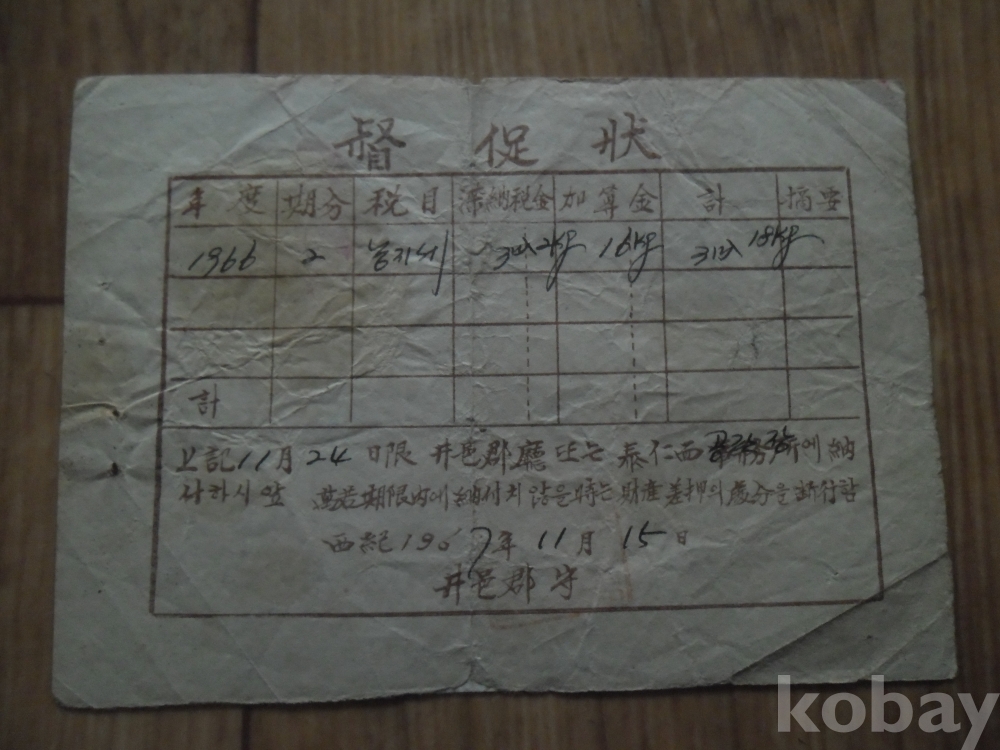 督促狀
年度 期分 税目 滞納税金 加算金 計 摘要
1966 2 농지세 3입 2kg 16kg 3입 18kg
計
上記 11月 24日限 井邑郡廳 또는 泰仁西 에 納
사하시압 萬若期限內에 納付치 않을時는 財産差押의 處分을 斷行함
西紀 1967年 11月 15日
井邑郡守
kobay